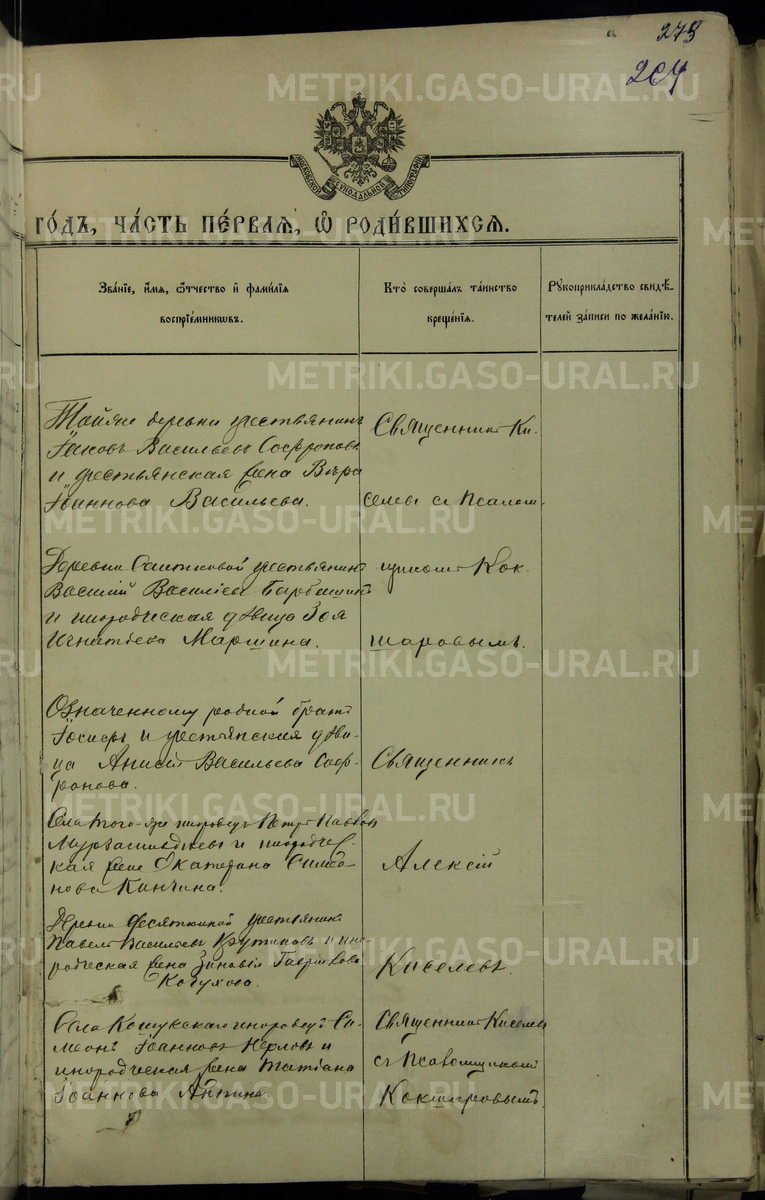 275
204
МОСКОВСКОЙ СѴНОДАЛЬНОЙ ТИПОГРАФІИ
ГО́ДЪ, ЧА́СТЬ ПЕ́РВАЯ, Ѡ҆ РОДИ́ВШИХСЯ.
Зва́нїе, и҆́мя, ѻ҆́тчество и҆ фами́лїя
воспрїе́мникѡвъ.
Кто̀ совершалъ та́инство
креще́нїя.
Рꙋкоприкла́дство свидѣ́-
телей за́писи по жела́нїю.
деревни крестьянинъ
Іаковъ Васильевъ Софроновъ
и крестьянская жена Вѣра
Іоаннова Васильева.
Священникъ Ки-
селевъ съ Псалом-
Деревни Саитковой крестьянинъ
Василій Васильевъ
и инородческая дѣвица Зоя
Игнатьева Маршина.
щикомъ Кок-
шаровымъ.
Означенному родной братъ
Іосифъ и крестьянская дѣви-
ца Анисія Васильева Соф-
ронова.
Священникъ
Села того-же инородецъ Петръ Павловъ
и инородчес-
кая жена Екатерина Симео-
нова Кинчина.
Алексій
Деревни Десяткиной крестьянинъ
Павелъ Васильевъ Крутиковъ и ино-
родческая жена Зиновія Гаврилова
Киселевъ.
Села Кошукскаго инородецъ Си-
меонъ Іоанновъ и
инородческая жена Татіана
Іоаннова
Священникъ Киселевъ
съ Псаломщикомъ
Кокшаровымъ
METRIKI.GASO-URAL.RU